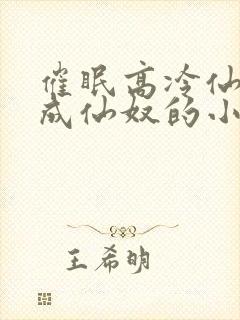 催眠高冷仙
成仙奴的小
王希明